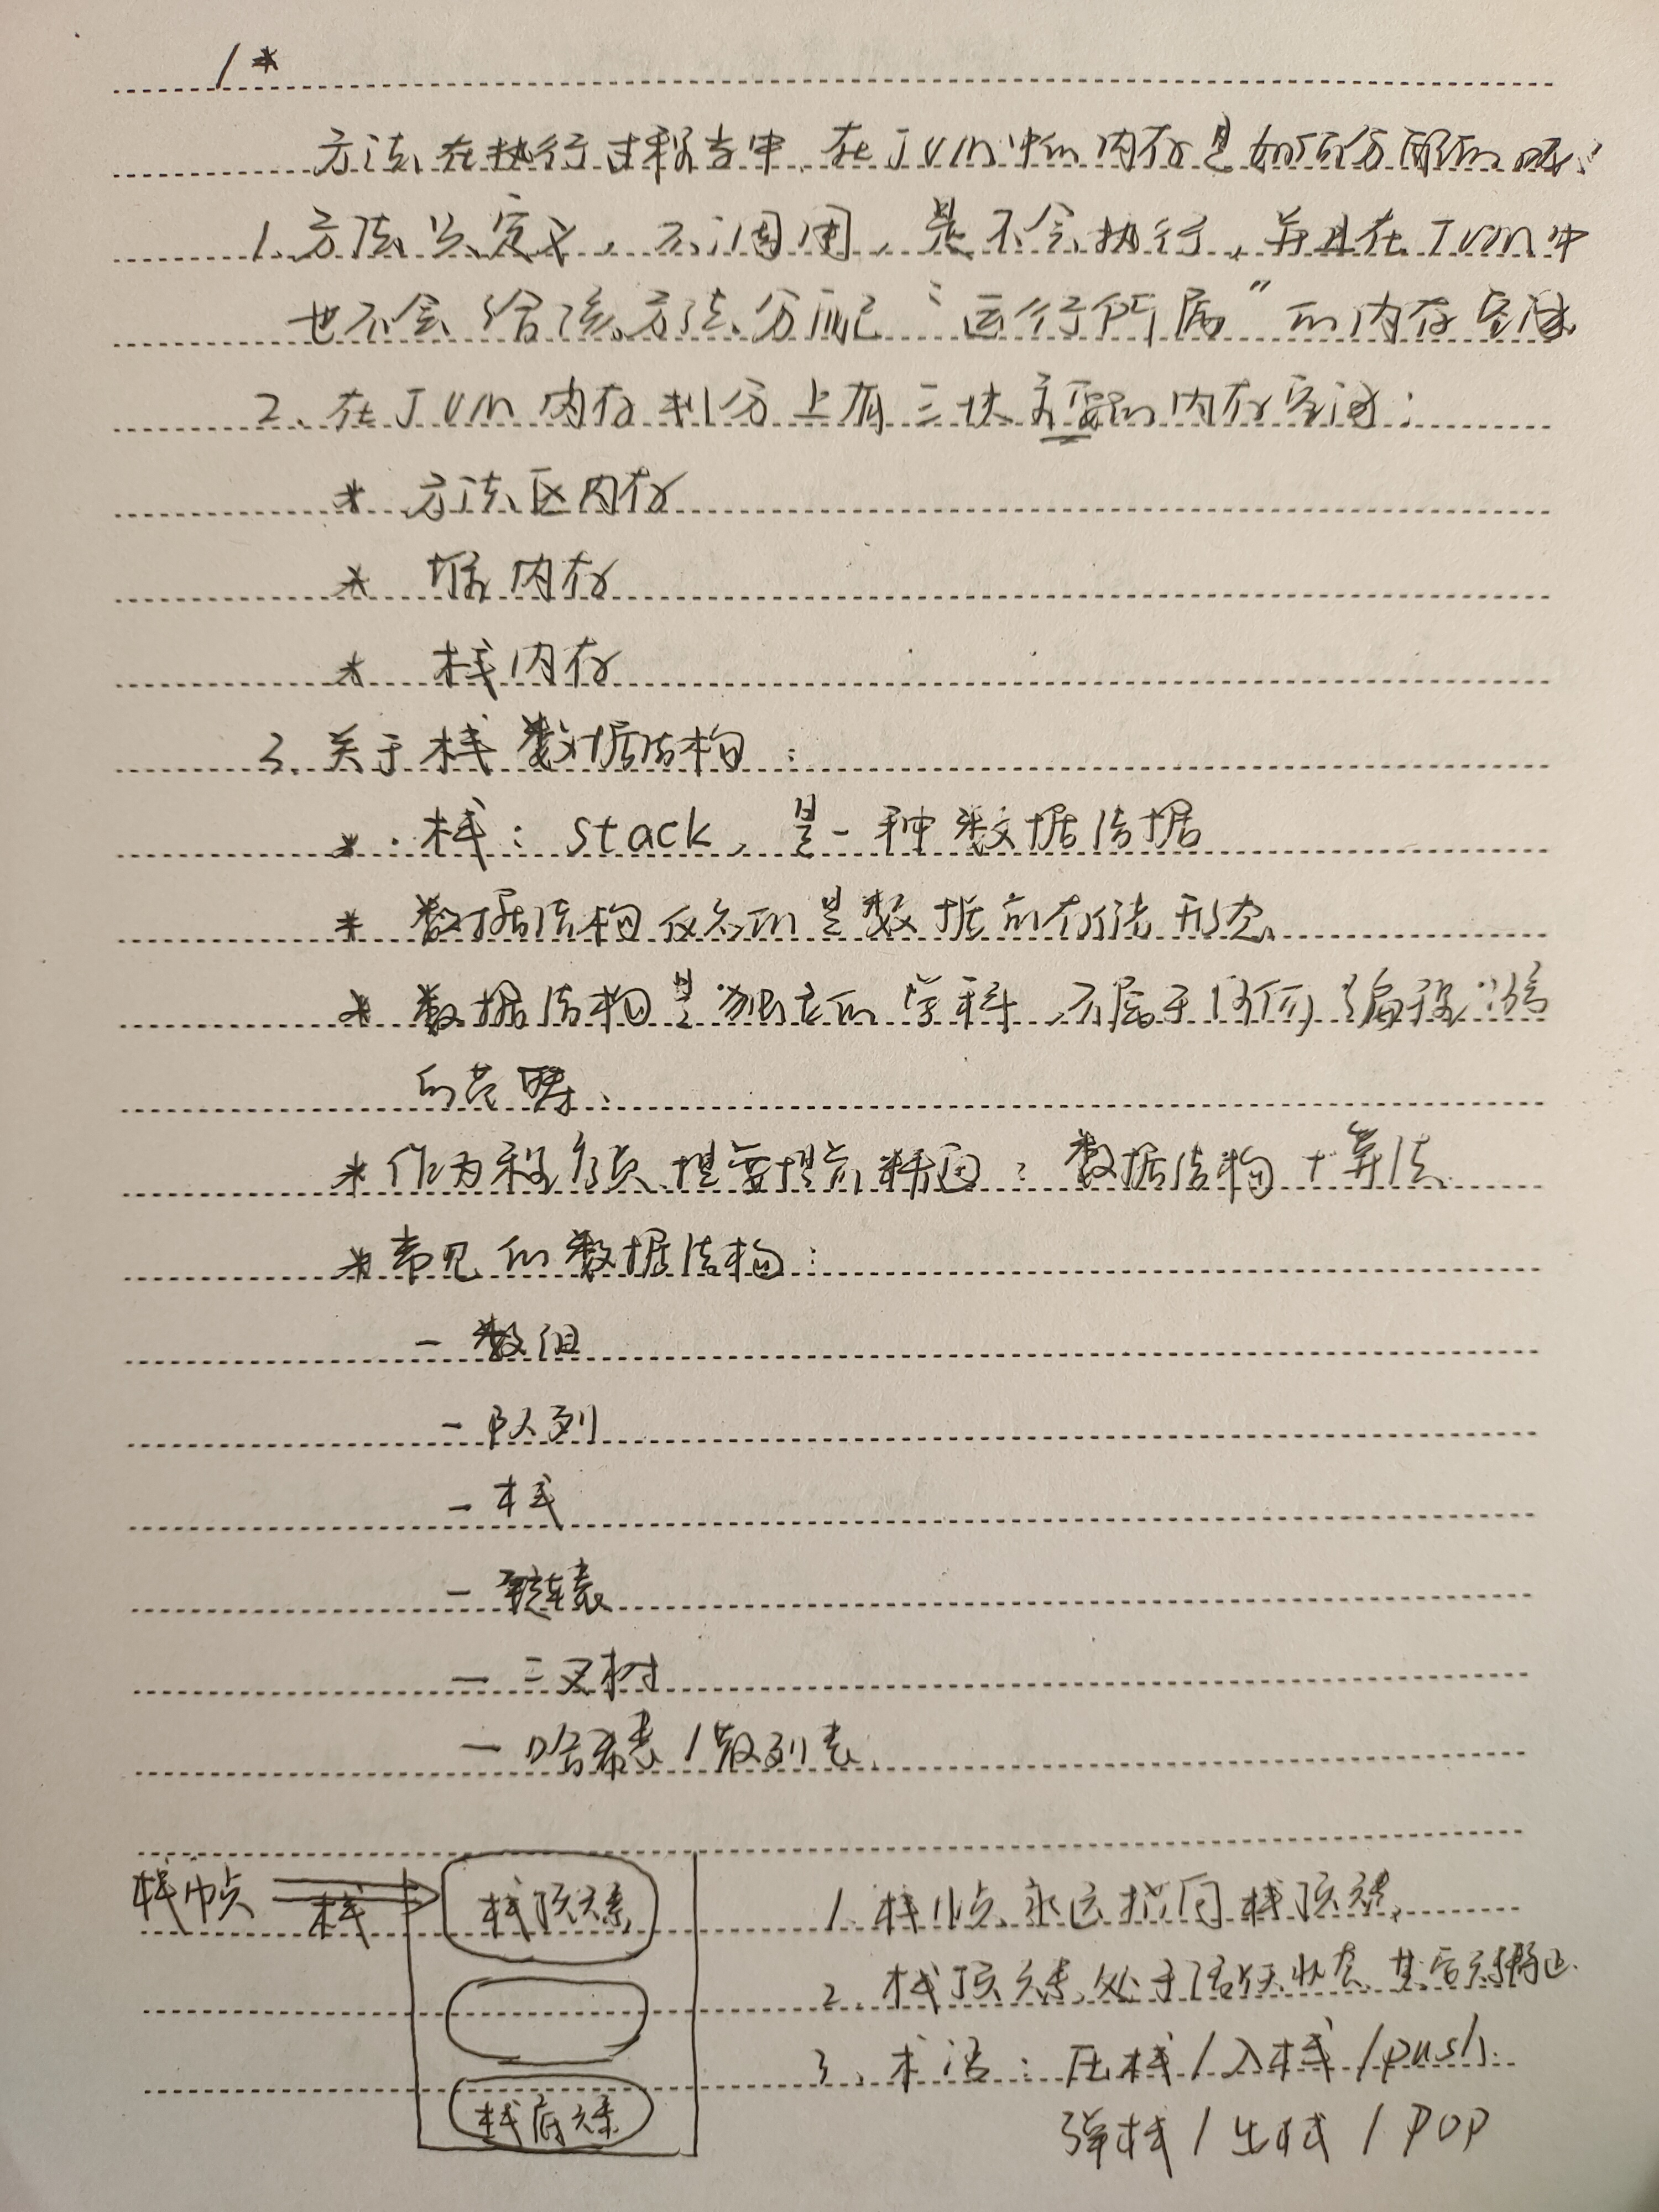 /*
方法在执行过程当中,在JVM中的内存是如何分配的呢?
1.方法只定义,不调用,是不会执行,并且在JVM中
也不会给该方法分配“运行所属”的内存空间
2.在JVM内存划分上有三块主要的内存空间:
* 方法区内存
* 堆内存
* 栈内存
3.关于栈数据结构:
* 栈:stack,是一种数据结据
* 数据结构反应的是数据的存储形态
* 数据结构是独立的学科,不属于任何编程语言
的范畴.
* 作为程序员 需要提前精通:数据结构+算法
* 常见的数据结构:
- 数组
- 队列
- 栈
- 链表
- 二叉树
- 哈希表/散列表
栈帧点 栈 栈顶元素
栈底元素
1.栈帧点永远指向栈顶元素
2.栈顶元素处于活跃状态,其它元素静止.
3.术语:压栈/入栈/push
弹栈/出栈/pop